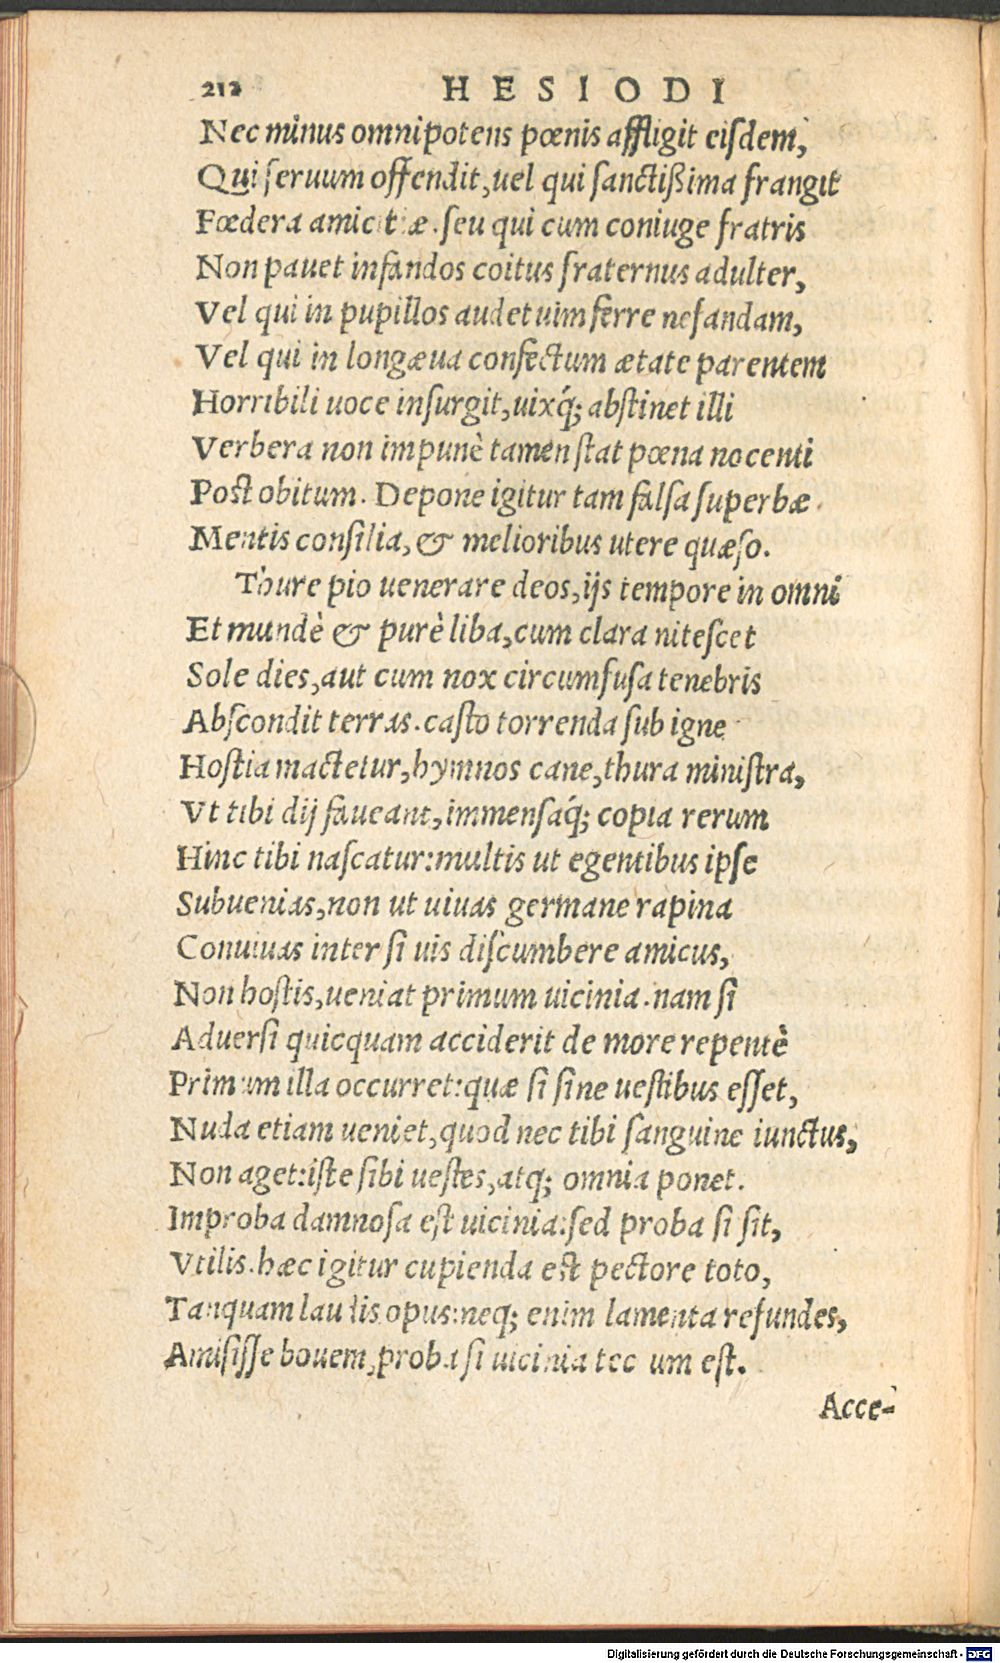 212 HESIODI
Nec minus omnipotens pœnis affligit eiſdem,
Qui ſeruum offendit, uel qui ſanctißima frangit
Fœdera amicitiæ. ſeu qui cum coniuge fratris
Non pauet infandos coitus fraternus adulter,
Vel qui in pupillos audet uim ferre nefandam,
Vel qui in longæua confectum ætate parentem
Horribili uoce inſurgit, uixq́; abſtinet illi
Verbera non impunè tamen ſtat pœna nocenti
Poſt obitum. Depone igitur tam falſa ſuperbæ
Mentis conſilia, & melioribus utere quæſo.
Thure pio uenerare deos, ijs tempore in omni
Et mundè & purè liba, cum clara niteſcet
Sole dies, aut cum nox circumfuſa tenebris
Abſcondit terras. caſto torrenda ſub igne
Hoſtia mactetur, hymnos cane, thura miniſtra,
Vt tibi dij faueant, immenſaq́; copia rerum
Hinc tibi naſcatur: multis ut egentibus ipſe
Subuenias, non ut uiuas germane rapina
Conuiuas inter ſi uis diſcumbere amicus,
Non hoſtis, ueniat primum uicinia. nam ſi
Aduerſi quicquam acciderit de more repentè
Primum illa occurret: quæ ſi ſine ueſtibus eſſet,
Nuda etiam ueniet, quod nec tibi ſanguine iunctus,
Non aget: iſte ſibi ueſtes, atq; omnia ponet.
Improba damnoſa eſt uicinia: ſed proba ſi ſit,
Vtilis. hæc igitur cupienda eſt pectore toto,
Tanquam laudis opus: neq; enim lamenta refundes,
Amiſiſſe bouem, proba ſi uicinia tec um eſt.
Acce-
Digitalisierung gefördert durch die Deutsche Forschungsgemeinschaft - DFG